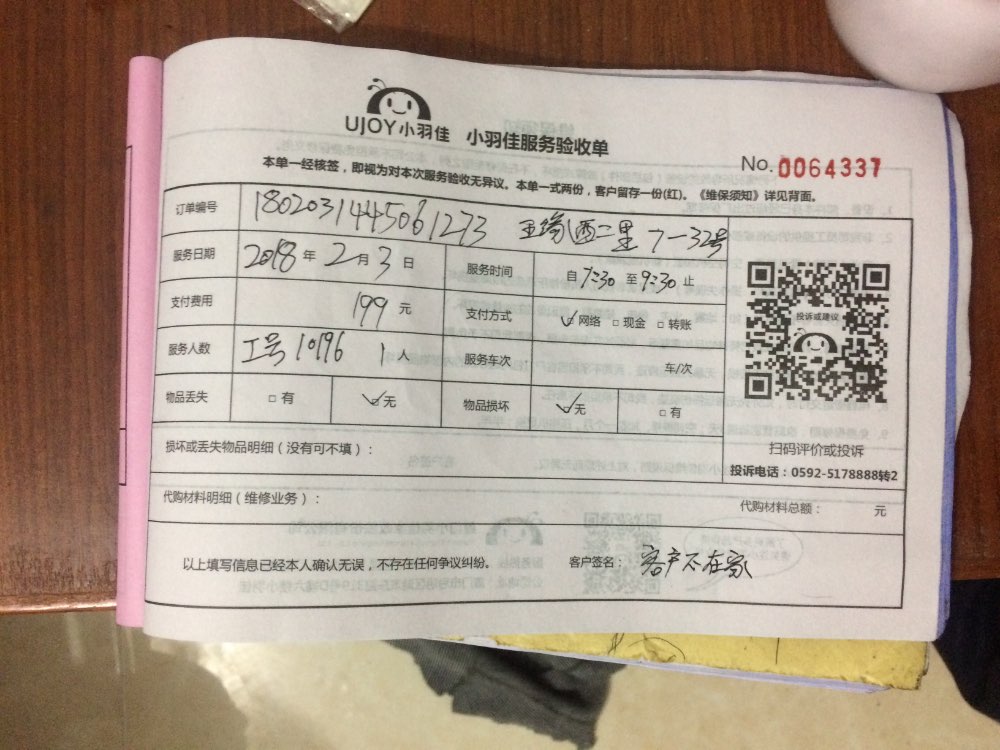 UJOY小羽佳 小羽佳服务验收单
No. 0064337
本单一经核签，即视为对本次服务验收无异议。本单一式两份，客户留存一份(红)。《维保须知》详见背面。
订单编号 1802031445061273 西二里 7-32号
服务日期 2018年2月3日 服务时间 自7:30至9:30止
支付费用 199元 支付方式 ☑网络 □现金 □转账
服务人数 工号10196 1人 服务车次 车/次
物品丢失 □有 ☑无 物品损坏 ☑无 □有
损坏或丢失物品明细（没有可不填）：
投诉或建议
扫码评价或投诉
投诉电话：0592-5178888转2
代购材料明细（维修业务）：
代购材料总额： 元
以上填写信息已经本人确认无误，不存在任何争议纠纷。 客户签名：客户不在家